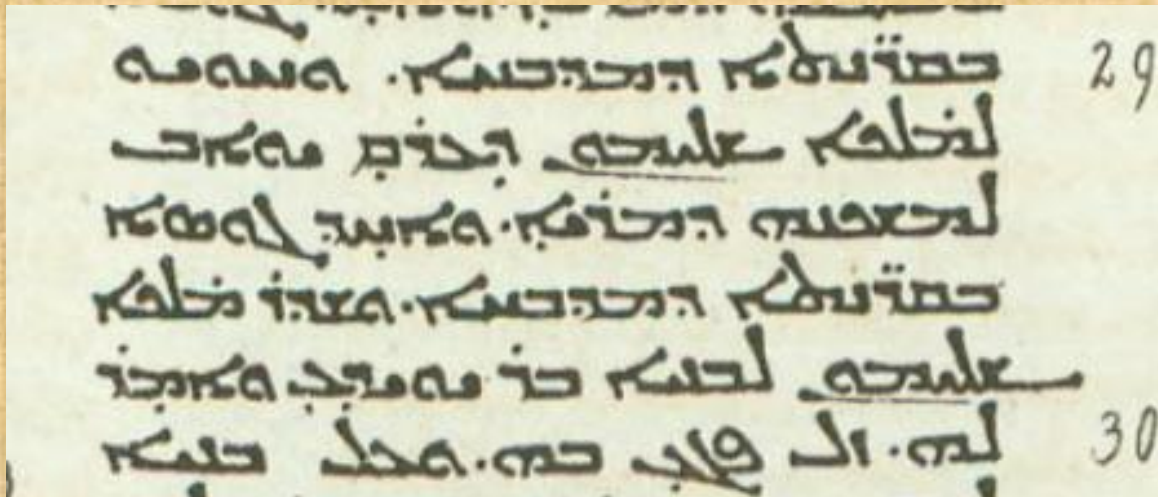 ܒܩܪ̈ܢܬܐ ܕܡܕܒܚܐ. ܘܚܘܝܘ 29
ܠܡܠܟܐ ܫܠܝܡܘܢ ܕܥܪܩ ܝܘܐܒ
ܠܡܫܟܢܗ ܕܡܪܝܐ. ܘܐܚܝܕ ܓܘܣܐ
ܒܩܪ̈ܢܬܐ ܕܡܕܒܚܐ. ܘܫܕܪ ܡܠܟܐ
ܫܠܝܡܘܢ ܠܒܢܝܐ ܒܪ ܝܘܝܕܥ ܘܐܡܪ
ܠܗ. ܙܠ ܦܓܥ ܒܗ. ܘܥܠ ܒܢܝܐ 30